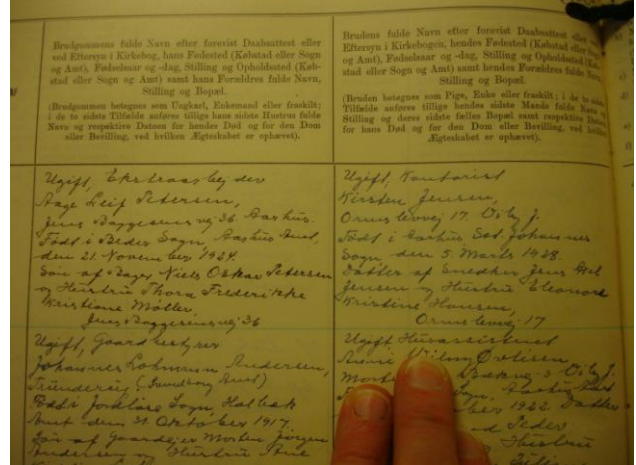 Brudgommens fulde Navn efter forevist Daabsattest eller
ved Eftersyn i Kirkebog, hans Fødested (Købstad eller Sogn
og Amt), Fødselsaar og -dag, Stilling og Opholdssted (Køb-
stad eller Sogn og Amt) samt hans Forældres fulde Navn,
Stilling og Bopæl.
(Brudgommen betegnes som Ungkarl, Enkemand eller fraskilt;
i de to sidste Tilfælde anføres tillige hans sidste Hustrus fulde
Navn og respektive Datoen for hendes Død og for den Dom
eller Bevilling, ved hvilken Ægteskabet er ophævet).
Ugift, Ekstraarbejder
Aage Leif Petersen,
Jens Baggesensvej 36 Aarhus.
Født i Beder Sogn, Aarhus Amt,
den 21. November 1924.
Søn af Bager Niels Oskar Petersen
og Hustru Thora Frederikke
Kristiane Møller,
Jens Baggesensvej 36
Ugift, Gaardbestyrer
Johannes Lohmann Andersen,
(Svendborg Amt)
Født i Sogn, Holbæk
Amt den 31 Oktober 1917.
Søn af Gaardejer Morten Jørgen
Andersen og Hustru Ane
Brudens fulde Navn efter forevist Daabsattest eller
Eftersyn i Kirkebogen, hendes Fødested (Købstad eller Sogn
og Amt), Fødselsaar og -dag, Stilling og Opholdssted (Køb-
stad eller Sogn og Amt) samt hendes Forældres fulde Navn,
Stilling og Bopæl.
(Bruden betegnes som Pige, Enke eller fraskilt; i de to sidste
Tilfælde anføres tillige hendes sidste Mands fulde Navn og
Stilling og deres sidste fælles Bopæl samt respektive Datoen
for hans Død og for den Dom eller Bevilling, ved hvilken
Ægteskabet er ophævet).
Ugift, Kontorist
Kirsten Jensen,
Ormslevvej 17. Viby J.
Født i Aarhus Sct. Johannes
Sogn, den 5. Marts 1928.
Datter af Snedker Jens
Jensen og Hustru Eleonora
Kristine Hansen,
Ormslevvej 17
Ugift Husassistent
Vilma Ovesen
3 Viby J.
Sogn, Aarhus Amt
1922 Datter
Peder
Hustru